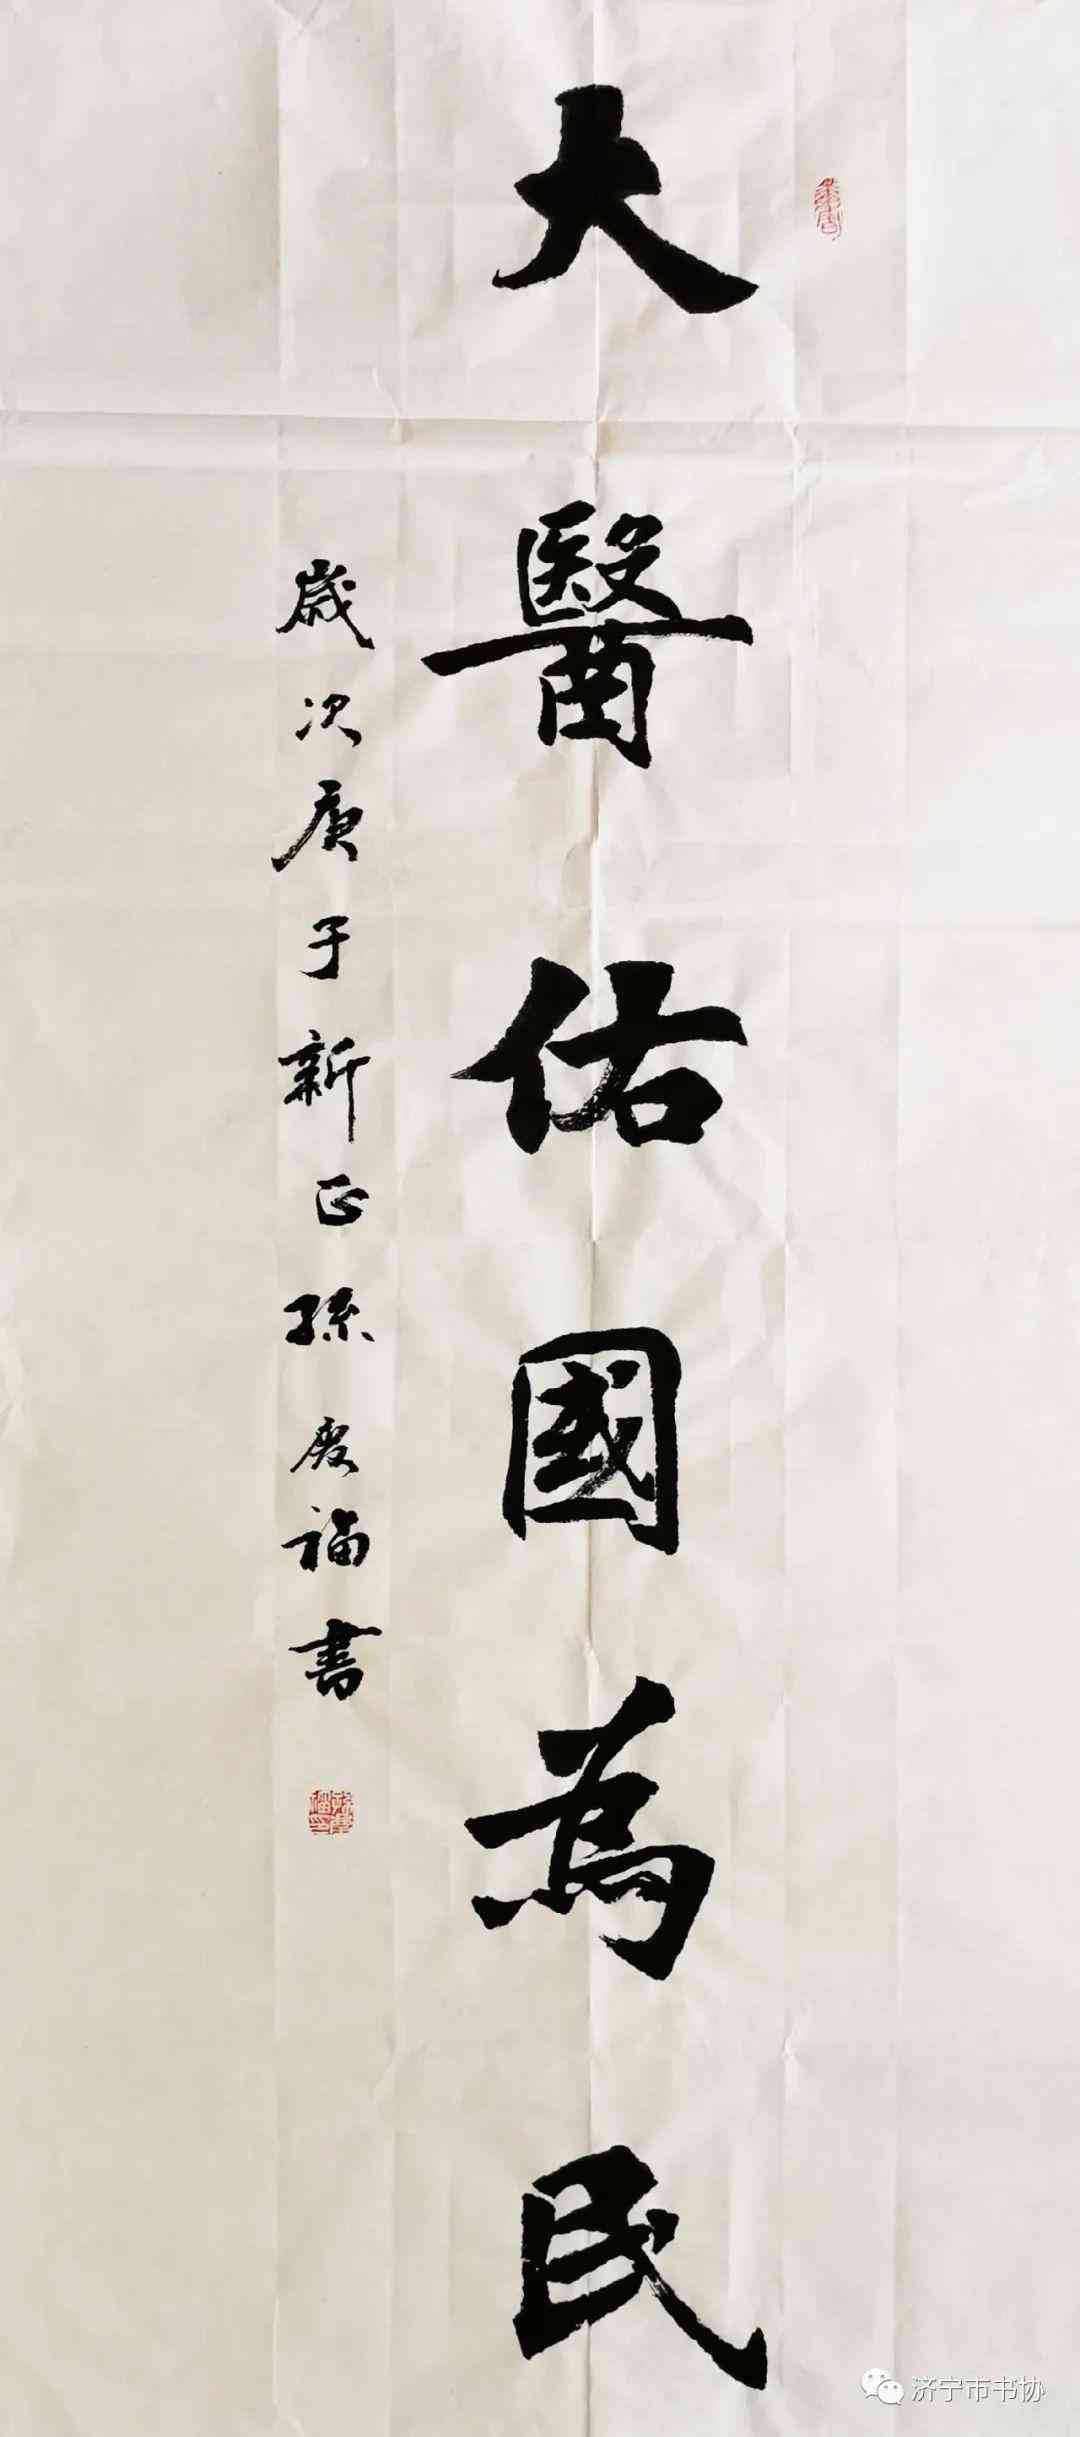 大醫佑國為民
歲次庚子新正孫慶福書
济宁市书协